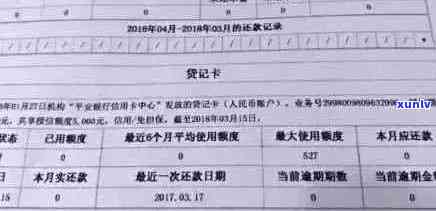 0 0 0 0 0
2016年04月-2018年03月的还款记录
/ / / / / / / / / / / / / / / / / / / / / / / /
贷记卡
年01月27日机构“平安银行信用卡中心”发放的贷记卡(人民币账户),业务号
元,共享授信额度5,000元,信用/免担保。截至2018年03月15日,
xunlv
状态 已用额度 最近6个月平均使用额度 最大使用额度 本月应还款
0 0 527 0
日 本月实还款 最近一次还款日期 当前逾期期数 当前逾期金
15 0 2017.03.17 0 0